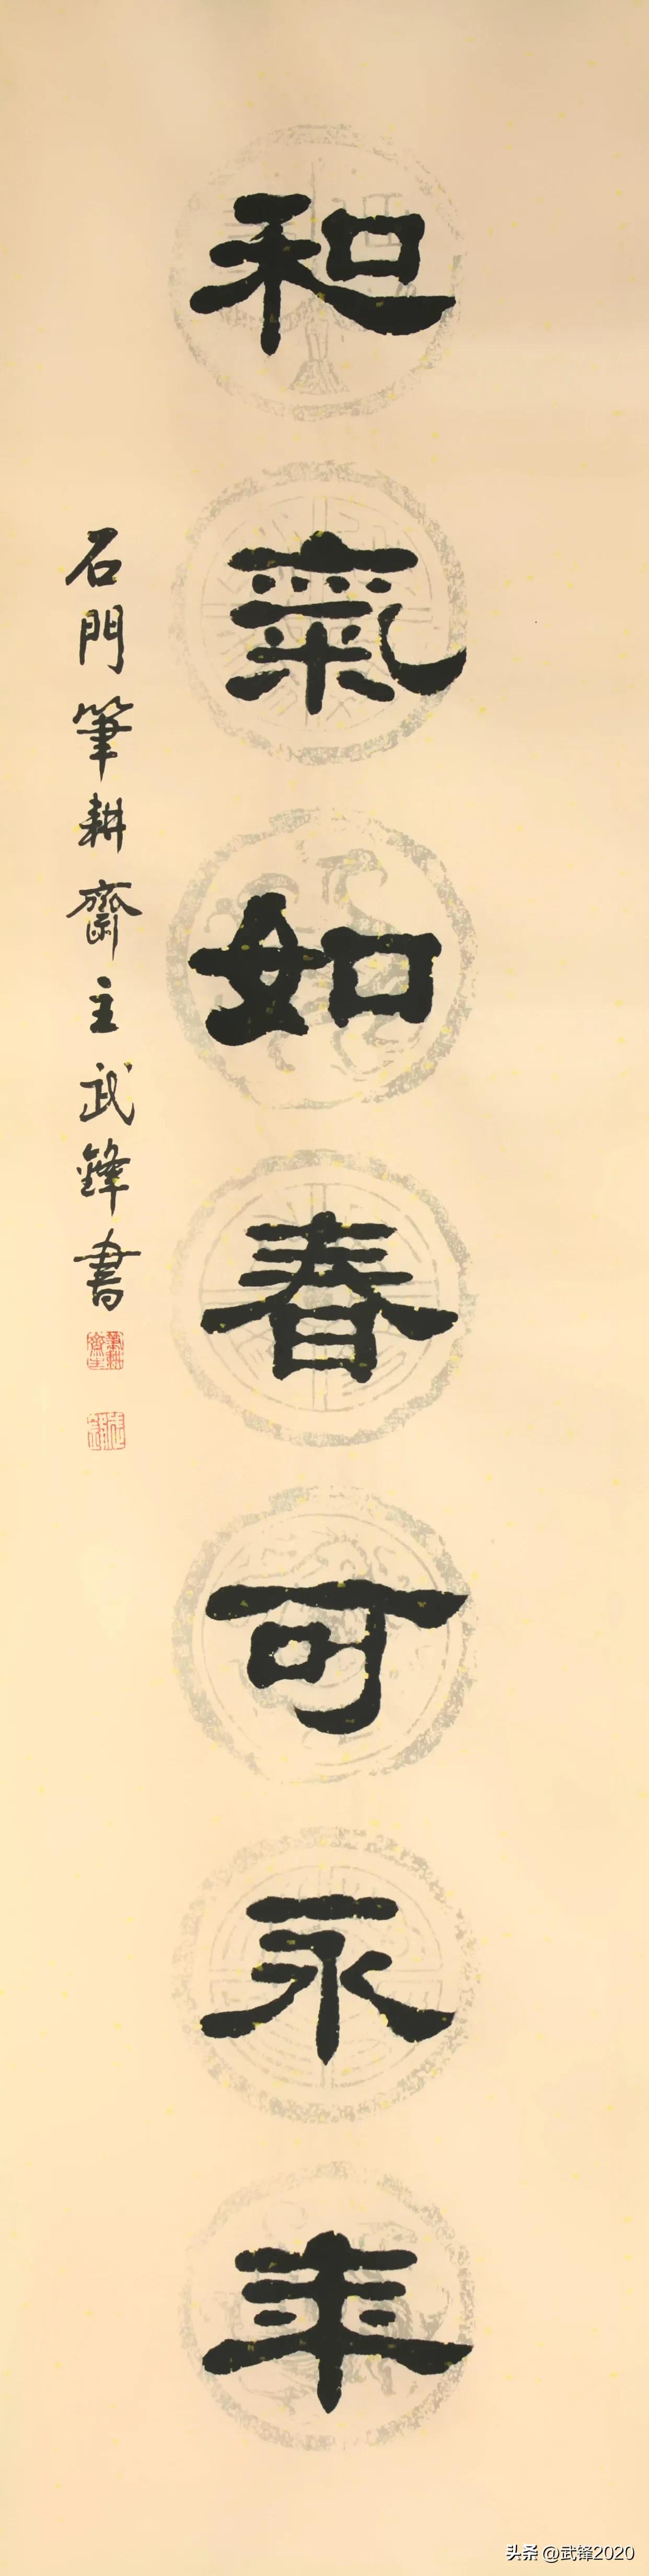 和氣如春可永年
石門筆耕齋主武鋒書
筆耕齋主
武鋒
头条 @武锋2020